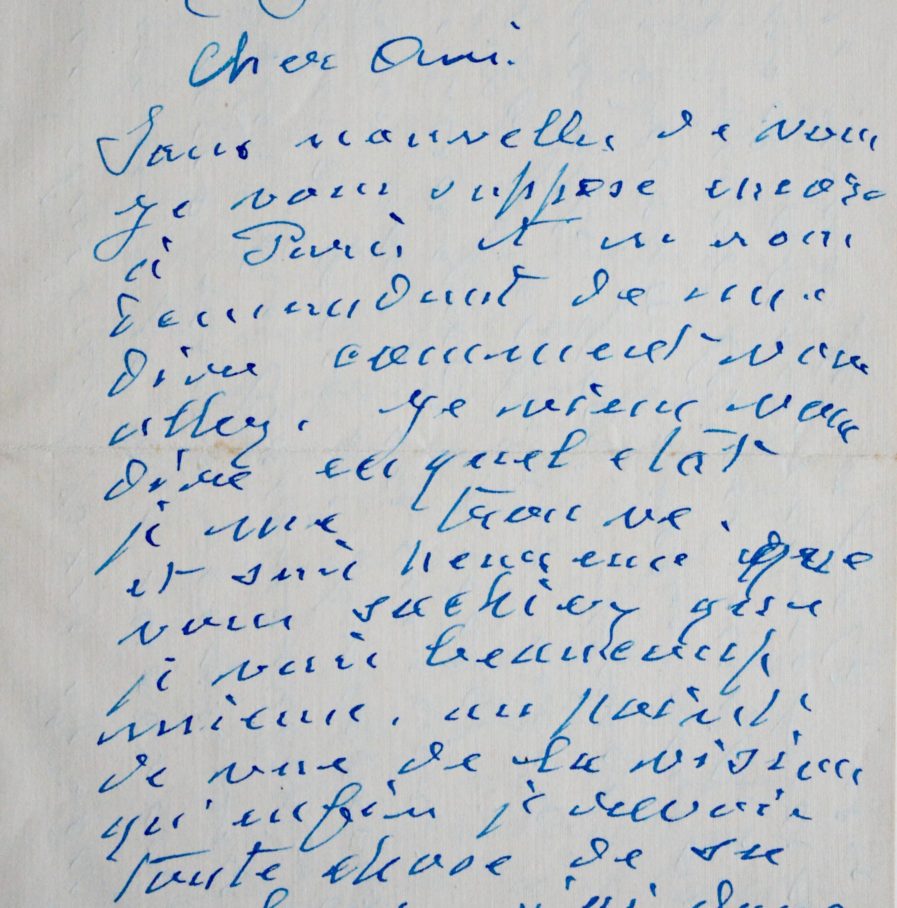 Cher Ami.
Sans nouvelles de vous
je vous suppose encore
à Paris et en vous
demandant de me
dire comment vous
allez. je viens vous
dire en quel etât
je me trouve.
et suis heureux que
vous sachiez que
je vais beaucoup
mieux, au point
de vue de la vision
qu'enfin je revois
toute chose de sa